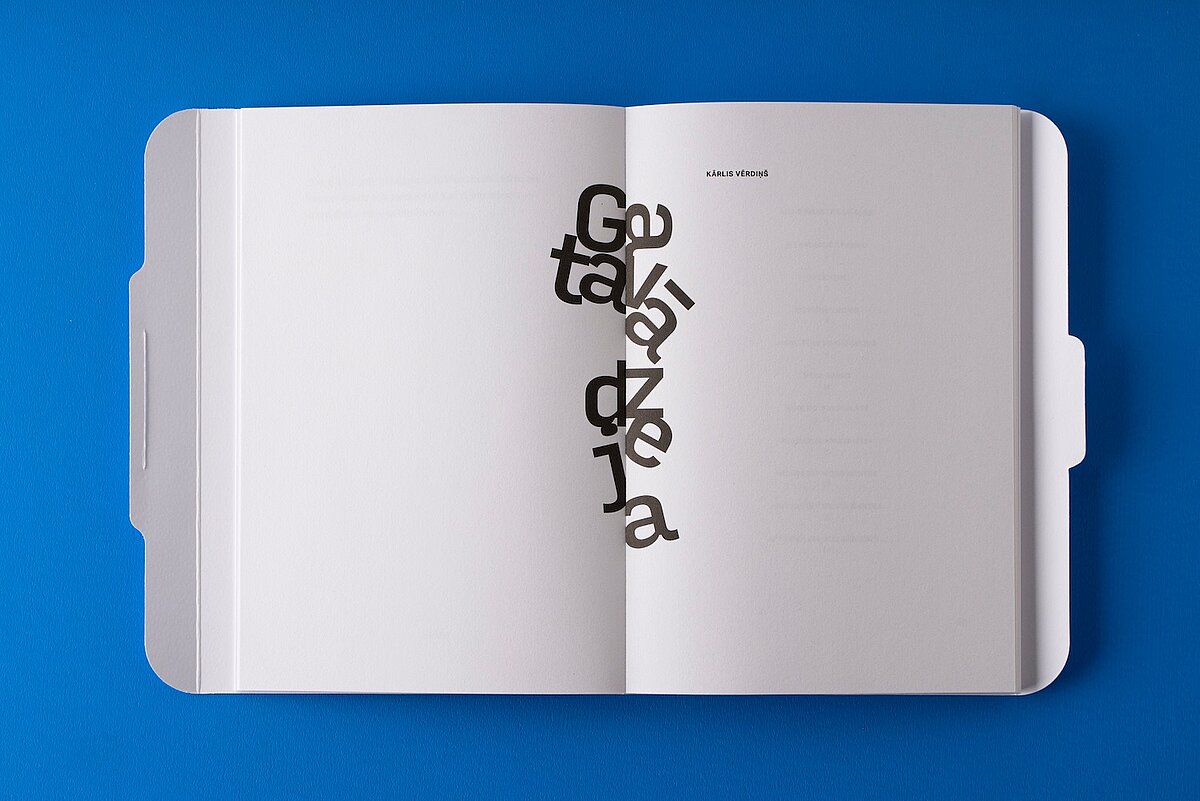 KĀRLIS VĒRDIŅŠ
Gatavā
dzeja